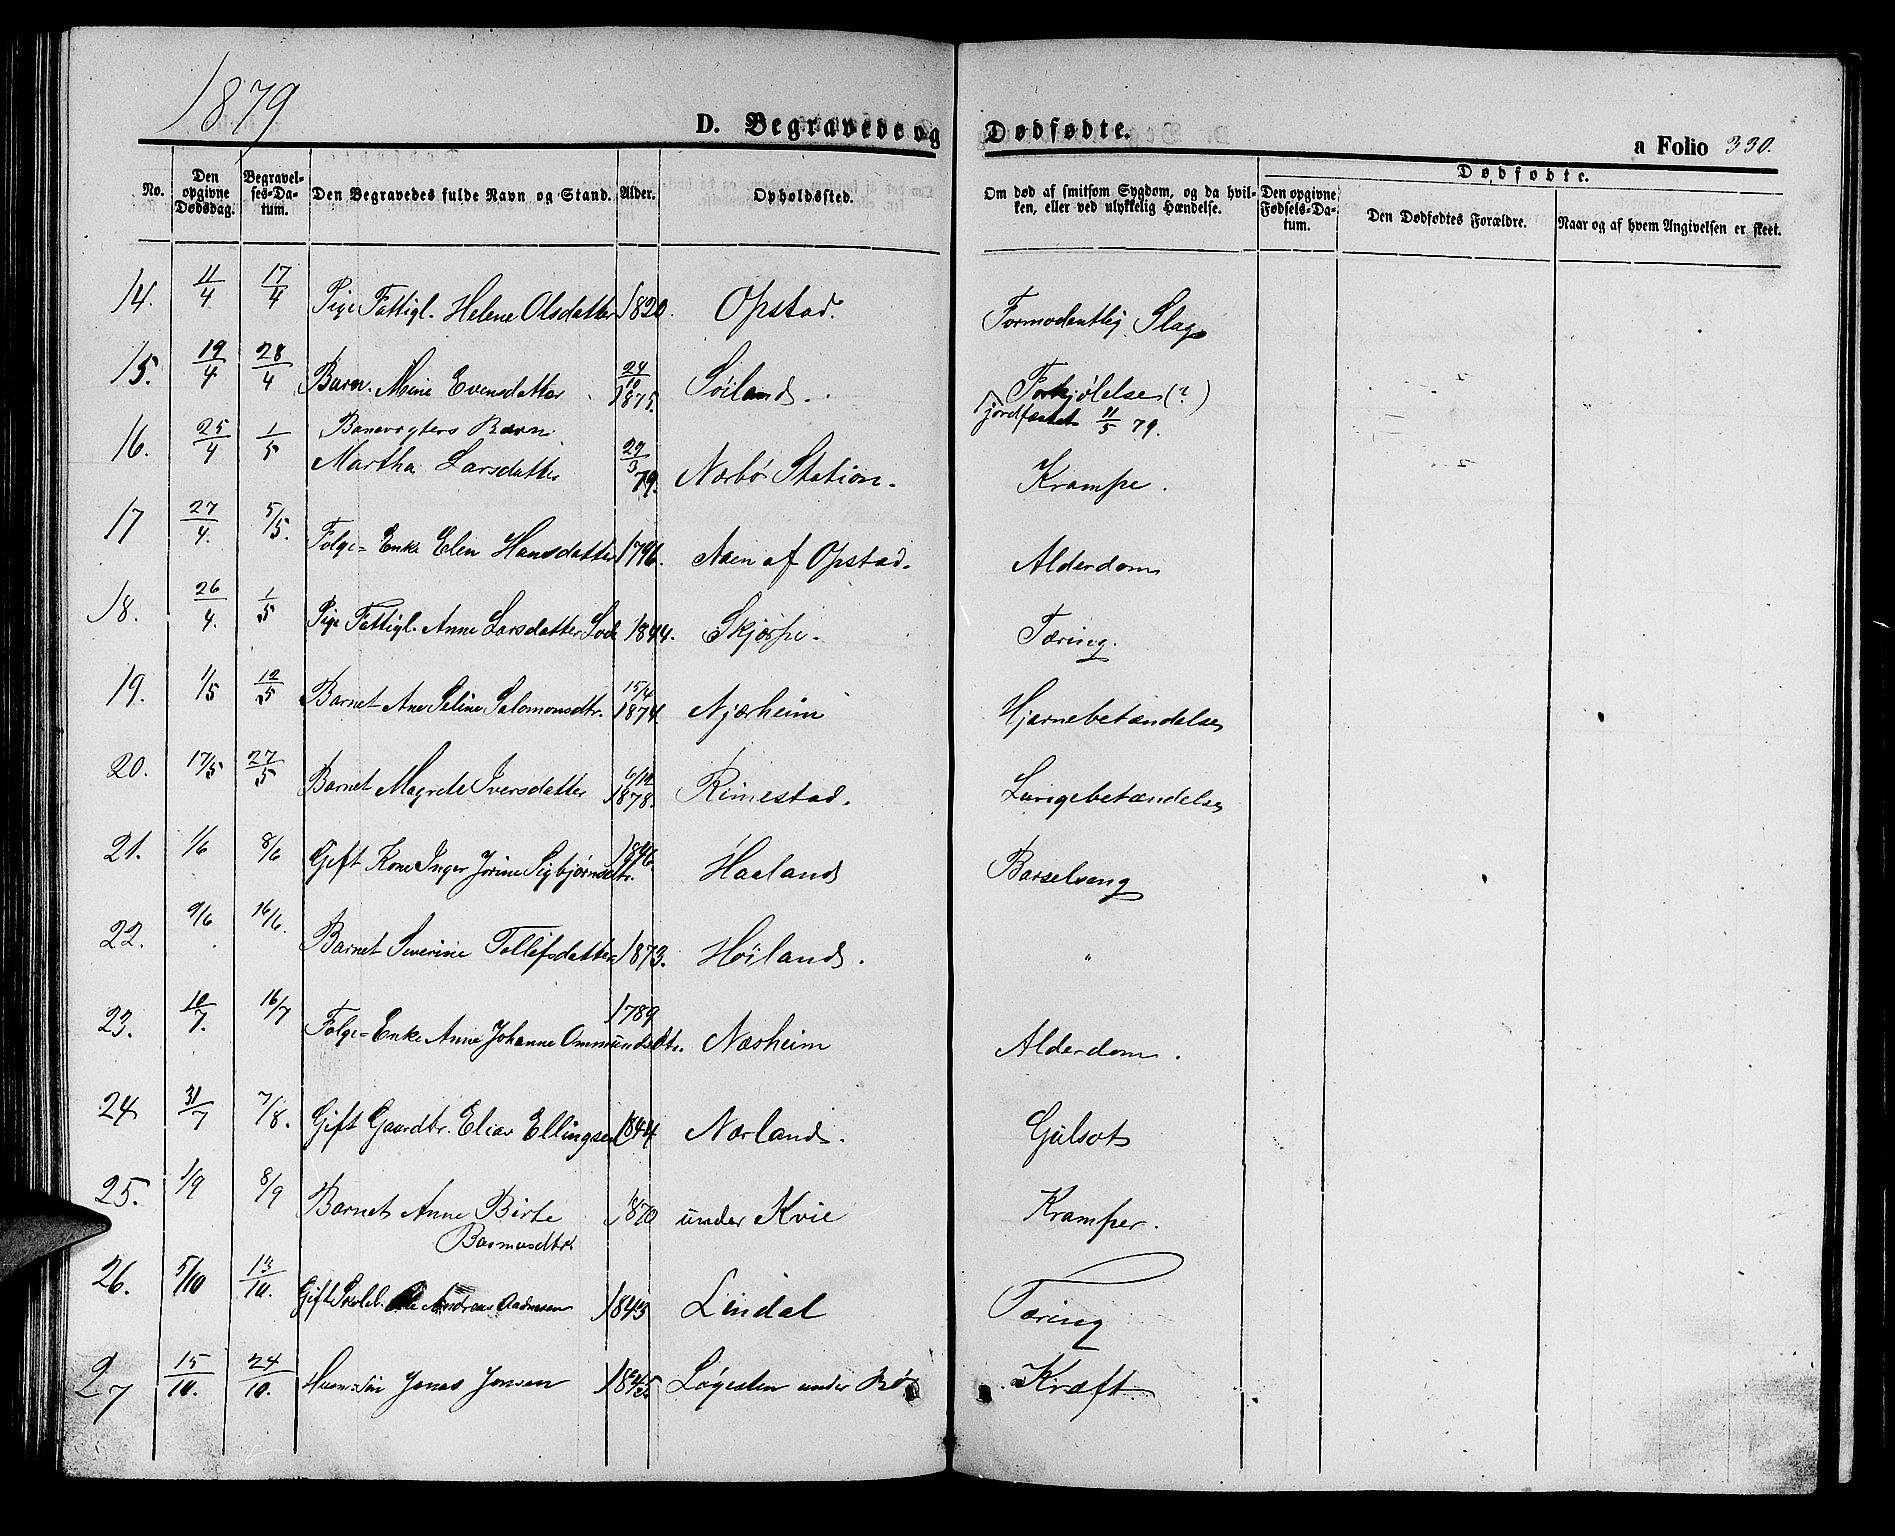 1879
D. Begravede og Dødfødte.
a Folio 330.
No. | Den opgivne Dødsdag. | Begravelses-Datum. | Den Begravedes fulde Navn og Stand. | Alder. | Opholdssted. | Om død af smitsom Sygdom, og da hvilken, eller ved ulykkelig Hændelse. | Dødfødte. Den opgivne Fødsels-Datum. | Den Dødfødtes Forældre. | Naar og af hvem Angivelsen er skeet.
14. 11/4 17/4 Pige Fattigl. Helene Olsdatter 1820. Opstad. Formodentlig Slag
15. 19/4 28/4 Barn. Mine Evensdatter 24/10 1875. Søiland. Forkjølelse (?)
jordfæstet 11/5 79.
16. 25/4 1/5 Banevogters Barn
Martha Larsdatter 29/3 79. Nærbø Station. Krampe.
17 27/4. 5/5. Følge=Enke Elen Hansdatter 1796. Næen af Opstad. Alderdom
18. 26/4. 1/5 Pige Fattigl. Anne Larsdatter 1844. Skjærpe. Tæring.
19. 1/5 12/5 Barnet Ane Seline Salomonsdtr. 15/4 1874. Njærheim Hjernebetændelse
20. 17/5 27/5 Barnet Magrete Iversdatter 6/12 1878. Rimestad. Lungebetændelse
21. 1/6 8/6 Gift Kone Inger Jorine Sigbjørnsdtr. 1846. Haaland Barselseng
22. 9/6 16/6. Barnet Severine Tollefsdatter 1873. Høiland. "
23. 10/7. 16/7 Følge=Enke Anne Johanne Ommundsdtr. 1789 Næsheim Alderdom.
24 31/7 7/8. Gift Gaardbr. Elias Ellingsen 1844 Nærland. Gulsot
25. 1/9 8/9 Barnet Anne Birte
Rasmusdtr. 1870 under Kvie Kramper.
26. 5/10 13/10. Gift Ole Andreas 1843 Lindal Tæring
27 15/10. 24/10. Jonas Jonsen 1845. under Bø Kræft.